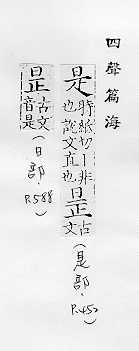 四聲篇海
是時紙切丨非也說文直也昰古文(是部.P.452)
昰古文音是(日部.P.588)